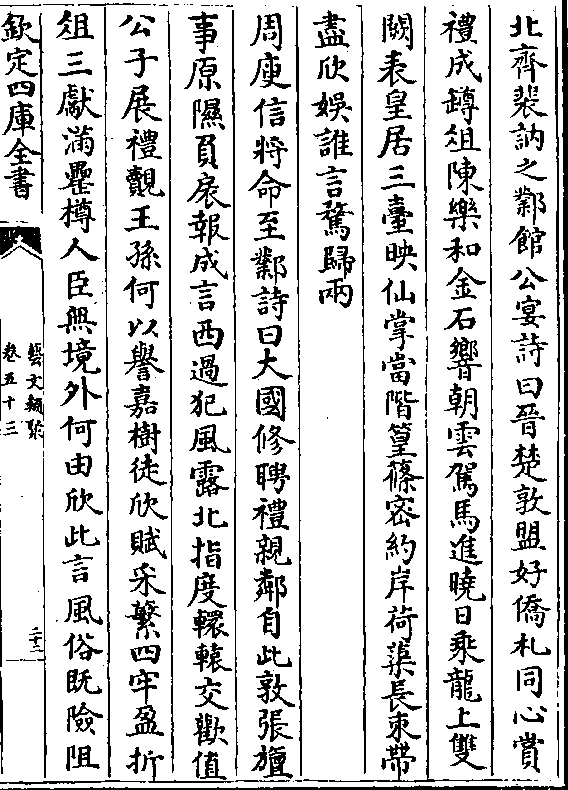 北齊裴訥之鄴館公宴詩曰晉楚敦盟好僑札同心賞
禮成罇俎陳樂和金石響朝雲駕馬進曉日乘龍上雙
闕表皇居三臺映仙掌當階篁篠密約岸荷蕖長束帶
盡欣娛誰言騖歸兩
周庾信將命至鄴詩曰大國修聘禮親鄰自此敦張旜
事原隰負扆報成言西過犯風露北指度轘轅交歡值
公子展禮覿王孫何以譽嘉樹徒欣賦采蘩四牢盈折
俎三獻滿罍樽人臣無境外何由欣此言風俗既險阻
欽定四庫全書
藝文類聚
卷五十三
二十二